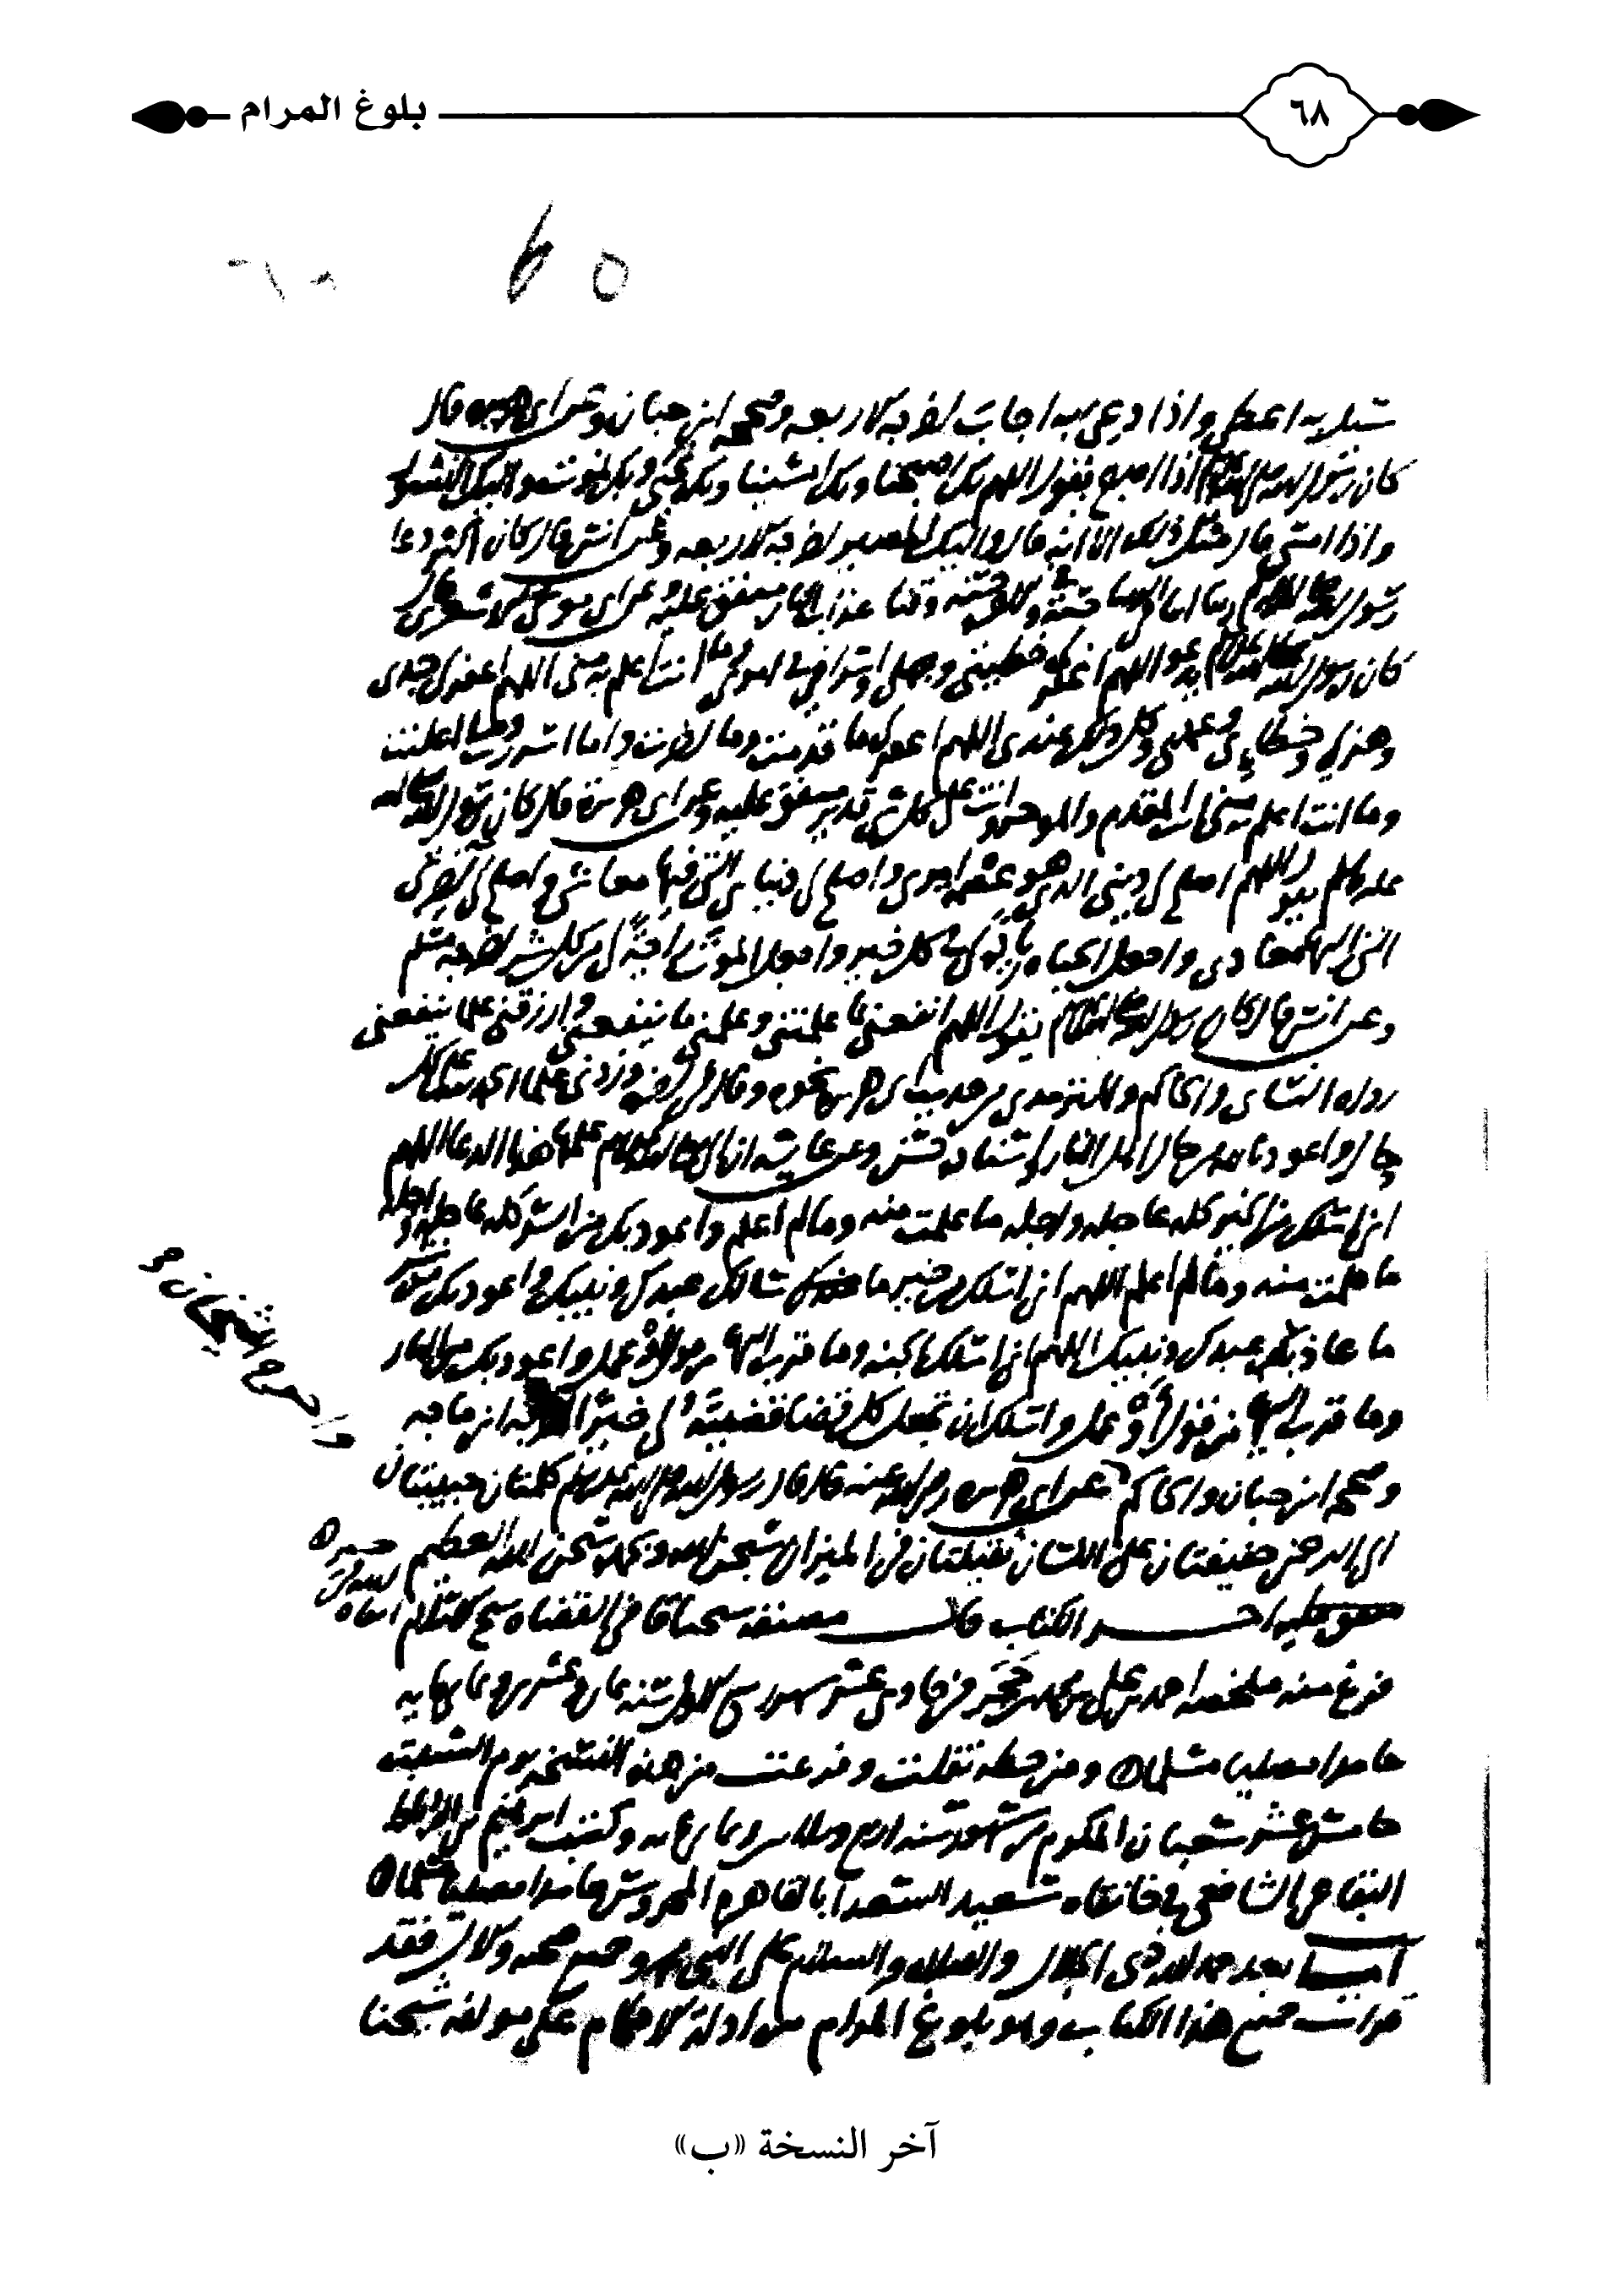 بلوغ المرام
٦٨
سئل به اعطى واذا دعي به اجاب اخرجه الاربعه وصححه ابن حبان وعن ابي هريره قال
كان رسول الله صلى الله عليه وسلم اذا اصبح يقول اللهم بك اصبحنا وبك امسينا وبك نحيى وبك نموت واليك النشور
واذا امسى قال مثل ذلك الا انه قال واليك المصير اخرجه الاربعه وعن انس قال كان اكثر دعا
رسول الله صلى الله عليه وسلم ربنا اتنا في الدنيا حسنة وفي الاخره حسنه وقنا عذاب النار متفق عليه وعن ابي موسى الاشعري قال
كان رسول الله صلى الله عليه وسلم يدعو اللهم اغفر لي خطيئتي وجهلي واسرافي في امري وما انت اعلم به مني اللهم اغفر لي جدي
وهزلي وخطاي وعمدي وكل ذلك عندي اللهم اغفر لي ما قدمت وما اخرت وما اسررت وما اعلنت
وما انت اعلم به مني انت المقدم والموخر وانت على كل شي قدير متفق عليه وعن ابي هريرة قال كان رسول الله صلى الله
عليه وسلم يقول اللهم اصلح لي ديني الذي هو عصمه امري واصلح لي دنياي التي فيها معاشي واصلح لي اخرتي
التي اليها معادي واجعل الحياه زيادة لي في كل خير واجعل الموت راحة لي من كل شر اخرجه مسلم
وعن انس قال كان رسول الله صلى الله عليه وسلم يقول اللهم انفعني بما علمتني وعلمني ما ينفعني وارزقني علما ينفعني
رواه النساي والحاكم وللترمذي من حديث ابي هريره نحوه وقال في اخره وزدني علما الحمد لله على كل
حال واعوذ بالله من حال اهل النار واسناده حسن وعن عايشه ان النبي صلى الله عليه وسلم علمها هذا الدعا اللهم
اني اسئلك من الخير كله عاجله واجله ما علمت منه وما لم اعلم واعوذ بك من الشر كله عاجله واجله
ما علمت منه وما لم اعلم اللهم اني اسئلك من خير ما سالك عبدك ونبيك واعوذ بك من شر
ما عاذ به عبدك ونبيك اللهم اني اسئلك الجنه وما قرب اليها من قول او عمل واعوذ بك من النار
وما قرب اليها من قول أو عمل واسئلك ان تجعل كل قضا قضيته لي خيرا اخرجه ابن ماجه
وصححه ابن حبان والحاكم واخرج الشيخان عن ابي هريره رضي الله عنه قال قال رسول الله صلى الله عليه وسلم كلمتان حبيبتان
الى الرحمن خفيفتان على اللسان ثقيلتان في الميزان سبحن الله وبحمده سبحن الله العظيم
اخر الكتاب قال مصنفه شيخنا قاضي القضاه شيخ الاسلام
فرغ منه ملخصه احمد بن علي بن محمد بن حجر في حادي عشر شهر ربيع الاول سنة ثمان وعشرين وثمانمايه
حامدا مصليا مسلما ومن خطه نقلت وفرغت من هذه النسخه يوم السبت
خامس عشر شعبان المكرم من شهور سنه اربع وثلاثين وثمانمايه وكتب ابراهيم بن
البقاعي الشافعي في خانقاه سعيد السعدا بالقاهره المحروسه حامدا مصليا مسلما
اما بعد حمد الله ذي الجلال والصلاه والسلام على النبي محمد وجميع صحبه والآل فقد
قرات جميع هذا الكتاب وهو بلوغ المرام من ادلة الاحكام على مولفه شيخنا
آخر النسخة «ب»